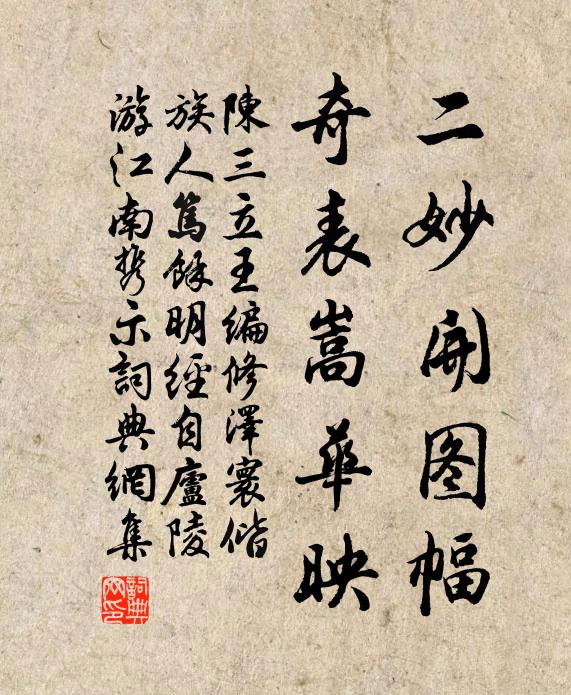 二妙开图幅
奇表嵩华映
陳三立王編修澤寰偕
族人篤餘明經自廬陵
游江南携示詞典網集
詞典網印